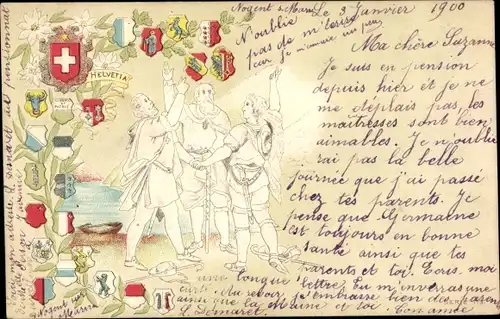 Nogent s/Marne Le 3 Janvier 1900
N'oublie
pas de m'écrire
car je m'ennuie un peu
Ma chère Suzanne
HELVETIA
Je suis en pension
depuis hier et je ne
me déplais pas, les
maîtresses sont bien
aimables. Je n'oublie
rai pas la belle
journée que j'ai passé
chez tes parents. Je
pense que Germaine
est toujours en bonne
santé ainsi que tes
parents et toi. Ecris ma
une longue lettre, tu m'
Au revoir, j'embrasse bien
ainsi que la
et toi. Ton amie
S. Demaret
Nogent sur
Marne
mon adresse S. Demaret